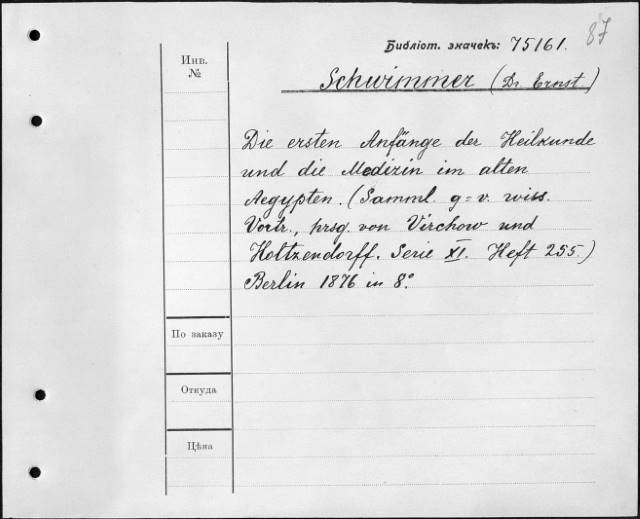 87
Библіот. значекъ: 75161.
Инв.
№
Schwimmer (Dr. Ernst.)
Die ersten Anfänge der Heilkunde
und die Medizin im alten
Aegypten. (Samml. g=v. wiss.
Vortr., hrsg. von Virchow und
Holtzendorff. Serie XI. Heft 255.)
Berlin 1876 in 8°.
По заказу
Откуда
Цѣна